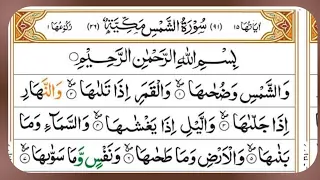 اٰيَاتُهَا ١٥ (٩١) سُوْرَةُ الشَّمْسِ مَكِّيَّةٌ (٢٦) رُكُوْعُهَا ١
بِسْمِ اللّٰهِ الرَّحْمٰنِ الرَّحِيْمِ
وَالشَّمْسِ وَضُحٰىهَا ۝١ وَالْقَمَرِ اِذَا تَلٰىهَا ۝٢ وَالنَّهَارِ
اِذَا جَلّٰىهَا ۝٣ وَالَّيْلِ اِذَا يَغْشٰىهَا ۝٤ وَالسَّمَآءِ وَمَا
بَنٰىهَا ۝٥ وَالْاَرْضِ وَمَا طَحٰىهَا ۝٦ وَنَفْسٍ وَّمَا سَوّٰىهَا ۝٧